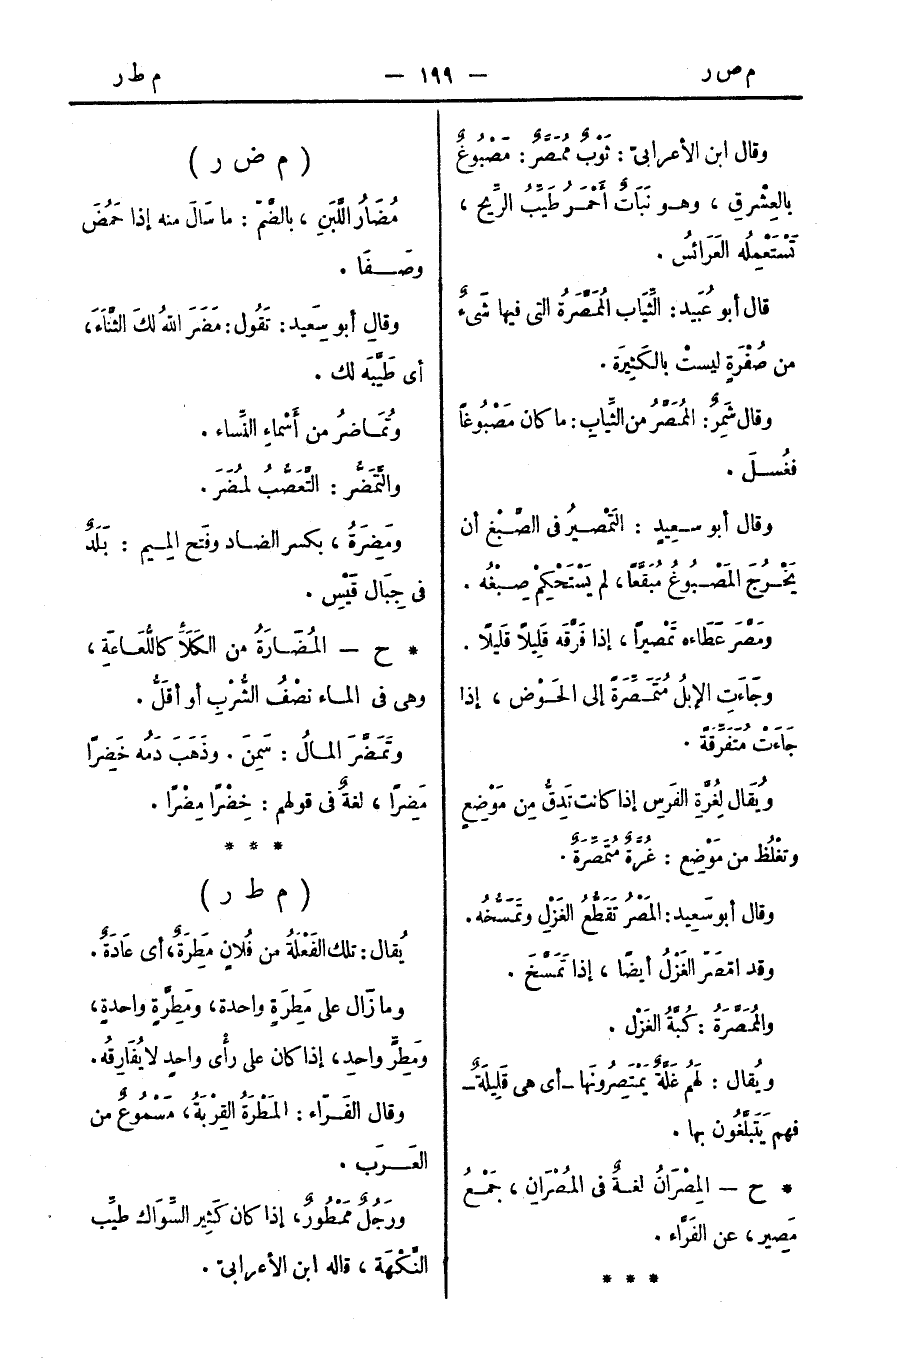 م ص ر
— ١٩٩ —
م ط ر
وقال ابن الأعرابىّ : ثَوْبٌ مُمَصَّرٌ : مَصْبُوغٌ
بالعِشْرِقِ ، وهو نَبَاتٌ أَحْمَرُ طَيِّبُ الرِّيح ،
تَسْتَعْمِلُه العَرَائسُ .
قال أبو عُبَيد : الثِّيَاب المُمَصَّرَةُ التى فيها شَىْءٌ
من صُفْرَةٍ ليستْ بالكَثِيرَة .
وقال شَمِرٌ : المُمَصَّرُ من الثِّيابِ : ما كان مَصْبُوغًا
فغُسلَ .
وقال أبو سعِيدٍ : التَمْصيرُ فى الصَّبْغِ أن
يَخْرُجَ المَصْبُوغُ مُبَقَّعًا ، لم يَسْتَحْكِمْ صِبْغُه .
ومَصَّرَ عَطَاءه تَمْصيرًا ، إذا فَرَّقه قَلِيلًا قَلِيلًا .
وجَاءَتِ الإبلُ مُتَمَصِّرَةً إلى الحَوْض ، إذا
جَاءَتْ مُتَفَرِّقَةً .
ويُقَال لِغُرَّةِ الفَرَسِ إذا كانت تَدِقُّ مِن مَوْضِعٍ
وتغْلُظ من مَوْضِعٍ : غُرَّةٌ مُتَمَصِّرَةٌ .
وقال أبو سَعِيد : المَصْرُ تَقَطُّعُ الغَزْلِ وتَمَسُّخُه .
وقد امَّصَرَ الغَزْلُ أيضًا ، إذا تَمَسَّخَ .
والمُمَصَّرَةُ : كُبَّةُ الغَزْل .
ويُقَال : لَهُم غَلَّةٌ يَمْتَصِرُونَهَا — أى هى قَلِيلَةٌ —
فهم يَتَبَلَّغُون بها .
* ح — المِصْرَانُ لغةٌ فى المُصْرَانِ ، جَمْعُ
مَصِير ، عن الفَرَّاء .
* * *
( م ض ر )
مُضَارُ اللَّبَنِ ، بالضَّمّ : ما سَالَ منه إذا حَمُضَ
وصَفَا .
وقال أبو سَعِيد : تَقُول : مَضَّرَ اللهُ لكَ الثَّنَاءَ ،
أى طَيَّبَه لك .
وتُمَاضرُ من أَسْماءِ النِّسَاء .
والتَّمَضُّر : التَّعَصُّب لمُضَرَ .
ومَضِرَةُ ، بكسر الضاد وفَتح الميم : بَلَدٌ
فى جِبَال قَيْسٍ .
* ح — المُضَارَةُ من الكَلَأَ كاللُّعَاعَةِ ،
وهى فى الماء نصْفُ الشُّرْبِ أو أقَلُّ .
وتَمَضَّرَ المالُ : سَمِنَ . وذَهَبَ دَمُه خَضِرًا
مَضِرًا ، لغةٌ فى قولهم : خِضْرًا مِضْرًا .
* * *
( م ط ر )
يُقال : تلك الفَعْلَةُ من فُلانٍ مَطِرَةٌ ، أى عَادَةٌ .
وما زَال على مَطِرَةٍ واحدة ، ومَطِرَّةٍ واحدةٍ ،
ومَطِرٍّ واحدٍ ، إذا كان على رأْى واحدٍ لا يُفَارِقُه .
وقال الفَرّاء : المَطْرَةُ القِرْبَةُ ، مَسْمُوعٌ من
العَرَب .
ورَجُلٌ مَمْطُورٌ ، إذا كان كَثِير السِّوَاك طيِّب
النَّكْهَة ، قاله ابن الأعرابىّ .